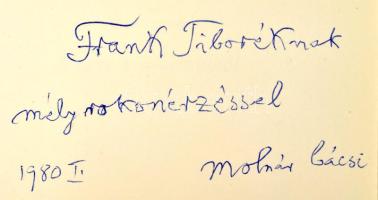 Frank Tiboréknak
mély rokonérzéssel
1980 II. Molnár bácsi